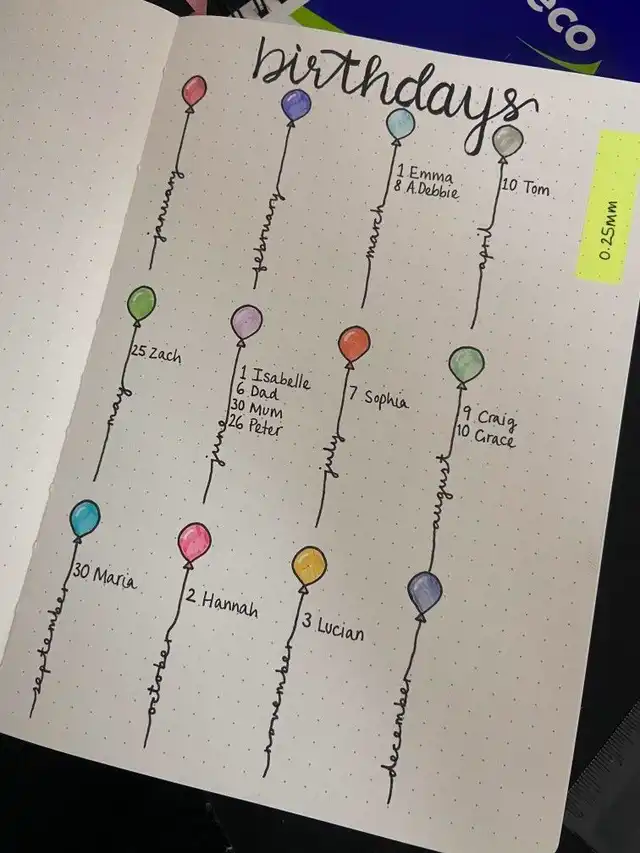 eco
birthdays
0.25mm
january
february
march
1 Emma
8 A.Debbie
april
10 Tom
may
25 Zach
june
1 Isabelle
6 Dad
30 Mum
26 Peter
july
7 Sophia
august
9 Craig
10 Grace
september
30 Maria
october
2 Hannah
november
3 Lucian
december